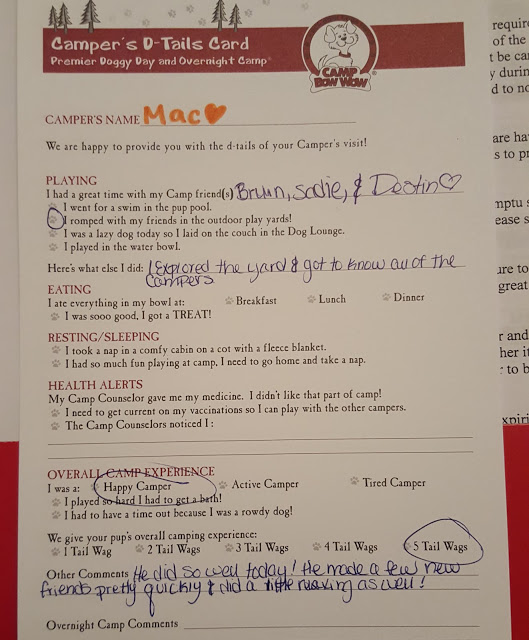 Camper's D-Tails Card
Premier Doggy Day and Overnight Camp®
CAMP
BOW WOW
CAMPER'S NAME Mac
We are happy to provide you with the d-tails of your Camper's visit!
PLAYING
I had a great time with my Camp friend(s) Bruin, Sadie, & Destin
I went for a swim in the pup pool.
I romped with my friends in the outdoor play yards!
I was a lazy dog today so I laid on the couch in the Dog Lounge.
I played in the water bowl.
Here's what else I did: I explored the yard & got to know all of the
campers
EATING
I ate everything in my bowl at: Breakfast Lunch Dinner
I was sooo good, I got a TREAT!
RESTING/SLEEPING
I took a nap in a comfy cabin on a cot with a fleece blanket.
I had so much fun playing at camp, I need to go home and take a nap.
HEALTH ALERTS
My Camp Counselor gave me my medicine. I didn't like that part of camp!
I need to get current on my vaccinations so I can play with the other campers.
The Camp Counselors noticed I:
OVERALL CAMP EXPERIENCE
I was a: Happy Camper Active Camper Tired Camper
I played so hard I had to get a bath!
I had to have a time out because I was a rowdy dog!
We give your pup's overall camping experience:
1 Tail Wag 2 Tail Wags 3 Tail Wags 4 Tail Wags 5 Tail Wags
Other Comments He did so well today! He made a few new
friends pretty quickly & did a little running as well!
Overnight Camp Comments